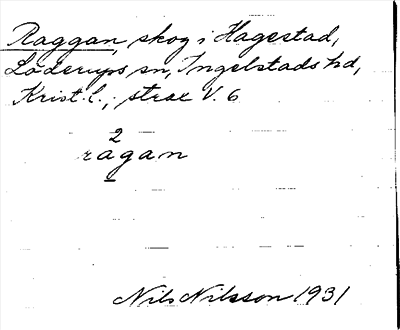 Raggan, skog i Hagestad,
Löderups sn, Ingelstads hd,
Krist. l.; strax V. 6
2
ragan
Nils Nilsson 1931